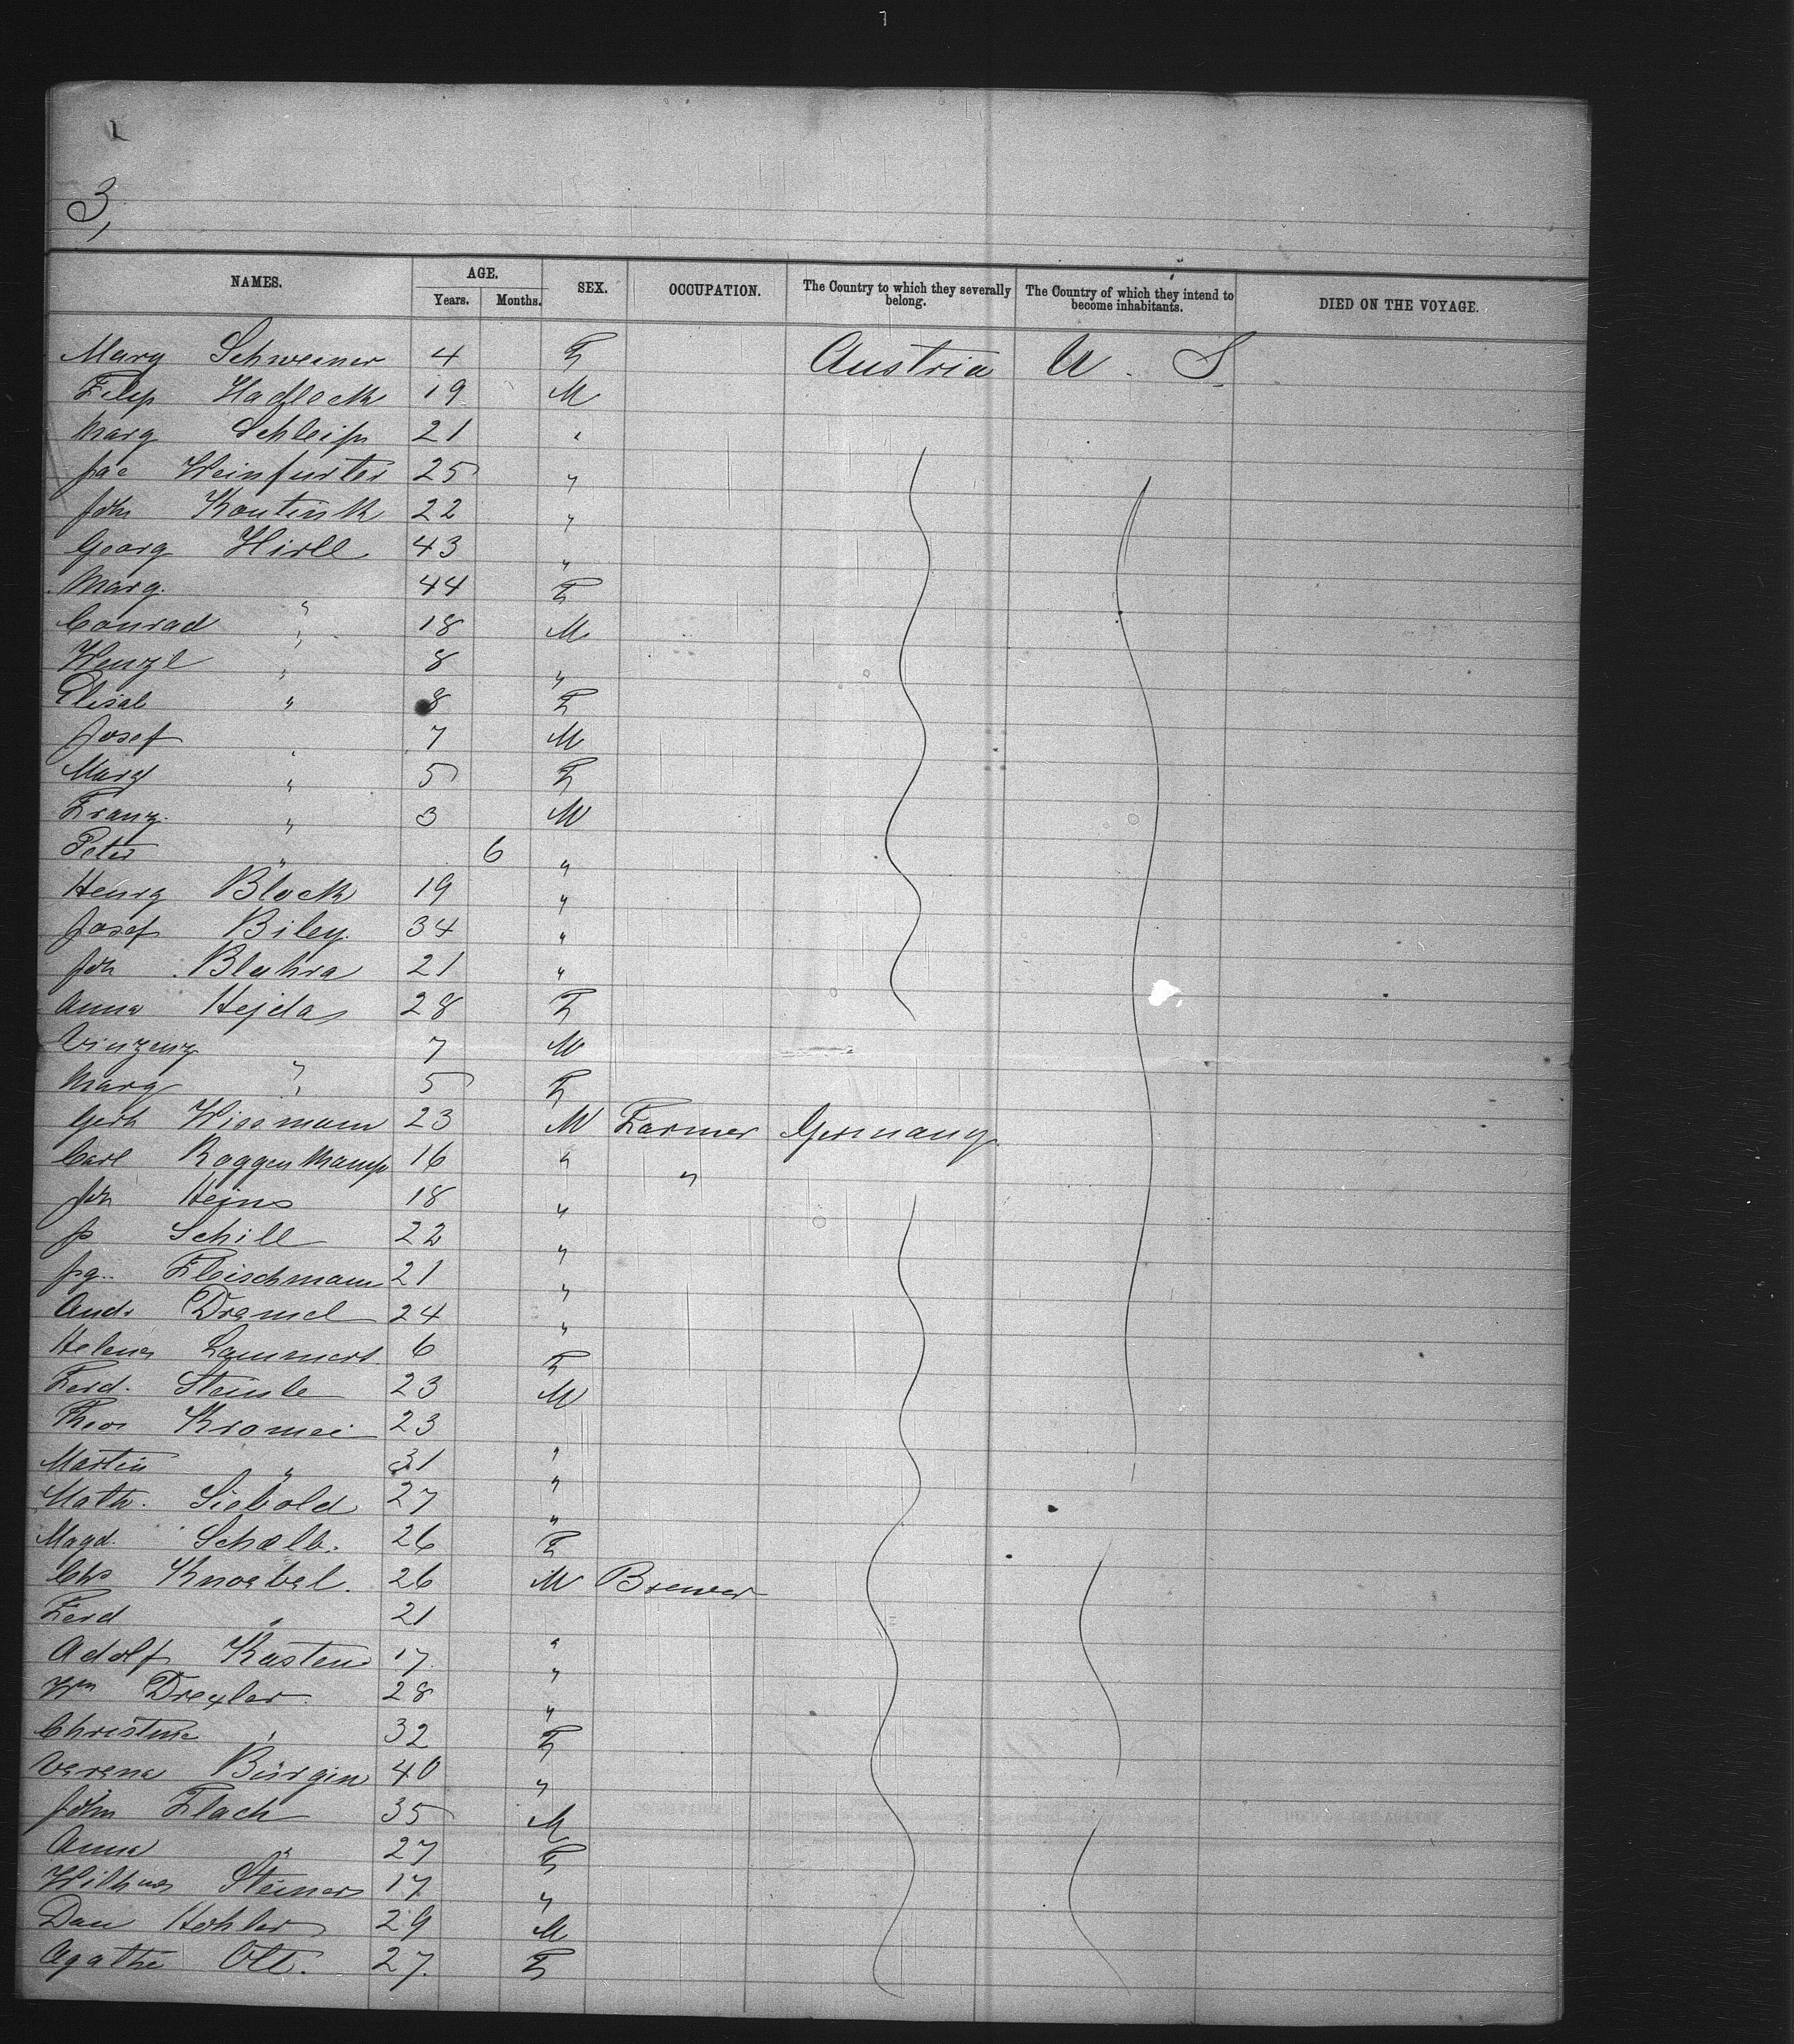 3,
NAMES. AGE. SEX. OCCUPATION. The Country to which they severally belong. The Country of which they intend to become inhabitants. DIED ON THE VOYAGE.
Years. Months.
Marg Schweiner 4 F Austria U. S.
Filip 19 M
Marg 21 "
Jac Weinfurter 25 "
Joh 22 "
Georg Hirll 43 "
Marg. " 44 F
Conrad " 18 M
Wenzl " 8 "
Elisab " 8 F
Josef " 7 M
Marg " 5 F
Franz. " 3 M
Peter " 6 "
Henry Block 19 "
Josef Biley. 34 "
Joh Blahra 21 "
Anna Hejda 28 F
Vinzenz " 7 M
Marg " 5 F
Gerh Wissmann 23 M Farmer Germany
Carl Roggenkamp 16 " "
Joh Heins 18 "
Js Schill 22 "
Fleischmann 21 "
Andr Dremel 24 "
Helena Lammert 6 F
Ferd. Steinle 23 M
Theo Kromei 23 "
Martin " 31 "
Math. Siebold 27 "
Magd. Schælb. 26 F
Chs Knoebel. 26 M Brewer
Ferd " 21 "
Adolf Kasten 17 "
Wm Drexler 28 "
Christine " 32 F
Verena Bürgin 40 "
John Flach 35 M
Anna " 27 F
Steiner 17 "
Dan Hohler 29 M
Agathe Ott. 27. F